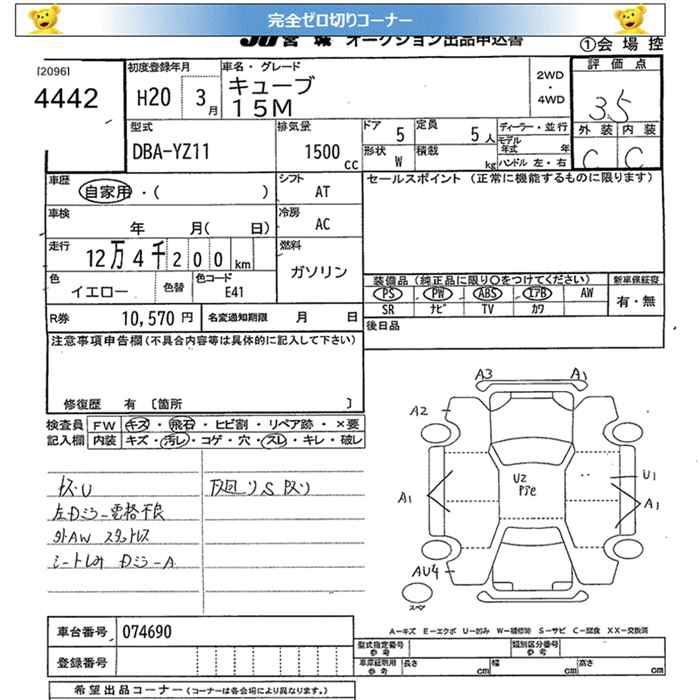 完全ゼロ切りコーナー
JU 宮城 オークション出品申込書 ①会場控
[2096]
4442
初度登録年月
H20 3月
車名・グレード
キューブ
15M
2WD
・
4WD
評価点
3.5
外装 内装
C C
型式
DBA-YZ11
排気量
1500 cc
ドア 5
定員 5人
形状 W
積載 kg
ディーラー・並行
モデル年式 年
ハンドル 左・右
車歴
自家用・( )
シフト AT
セールスポイント(正常に機能するものに限ります)
車検 年 月( 日)
冷房 AC
走行
12万4千200km
燃料
ガソリン
色 イエロー
色替
色コード E41
装備品(純正品に限り〇をつけてください)
PS PW ABS エアB AW
SR ナビ TV カワ
新車保証書
有・無
R券 10,570円
名変通知期限 月 日
後日品
注意事項申告欄(不具合内容等は具体的に記入して下さい)
修復歴 有 [箇所 ]
検査員記入欄
FW キズ・飛石・ヒビ割・リペア跡・×要
内装 キズ・汚レ・コゲ・穴・スレ・キレ・破レ
左Dミラー電格不良
外AW スタットレス
A3 A1
A2
U2
A1
U1
A1
AU4
スペア
A-キズ E-エクボ U-凹み W-補修跡 S-サビ C-腐食 XX-交換済
車台番号 074690
登録番号
型式指定番号 参考
類別区分番号 参考
車庫証明用 参考 長さ cm 幅 cm 高さ cm
希望出品コーナー(コーナーは各会場により異なります。)